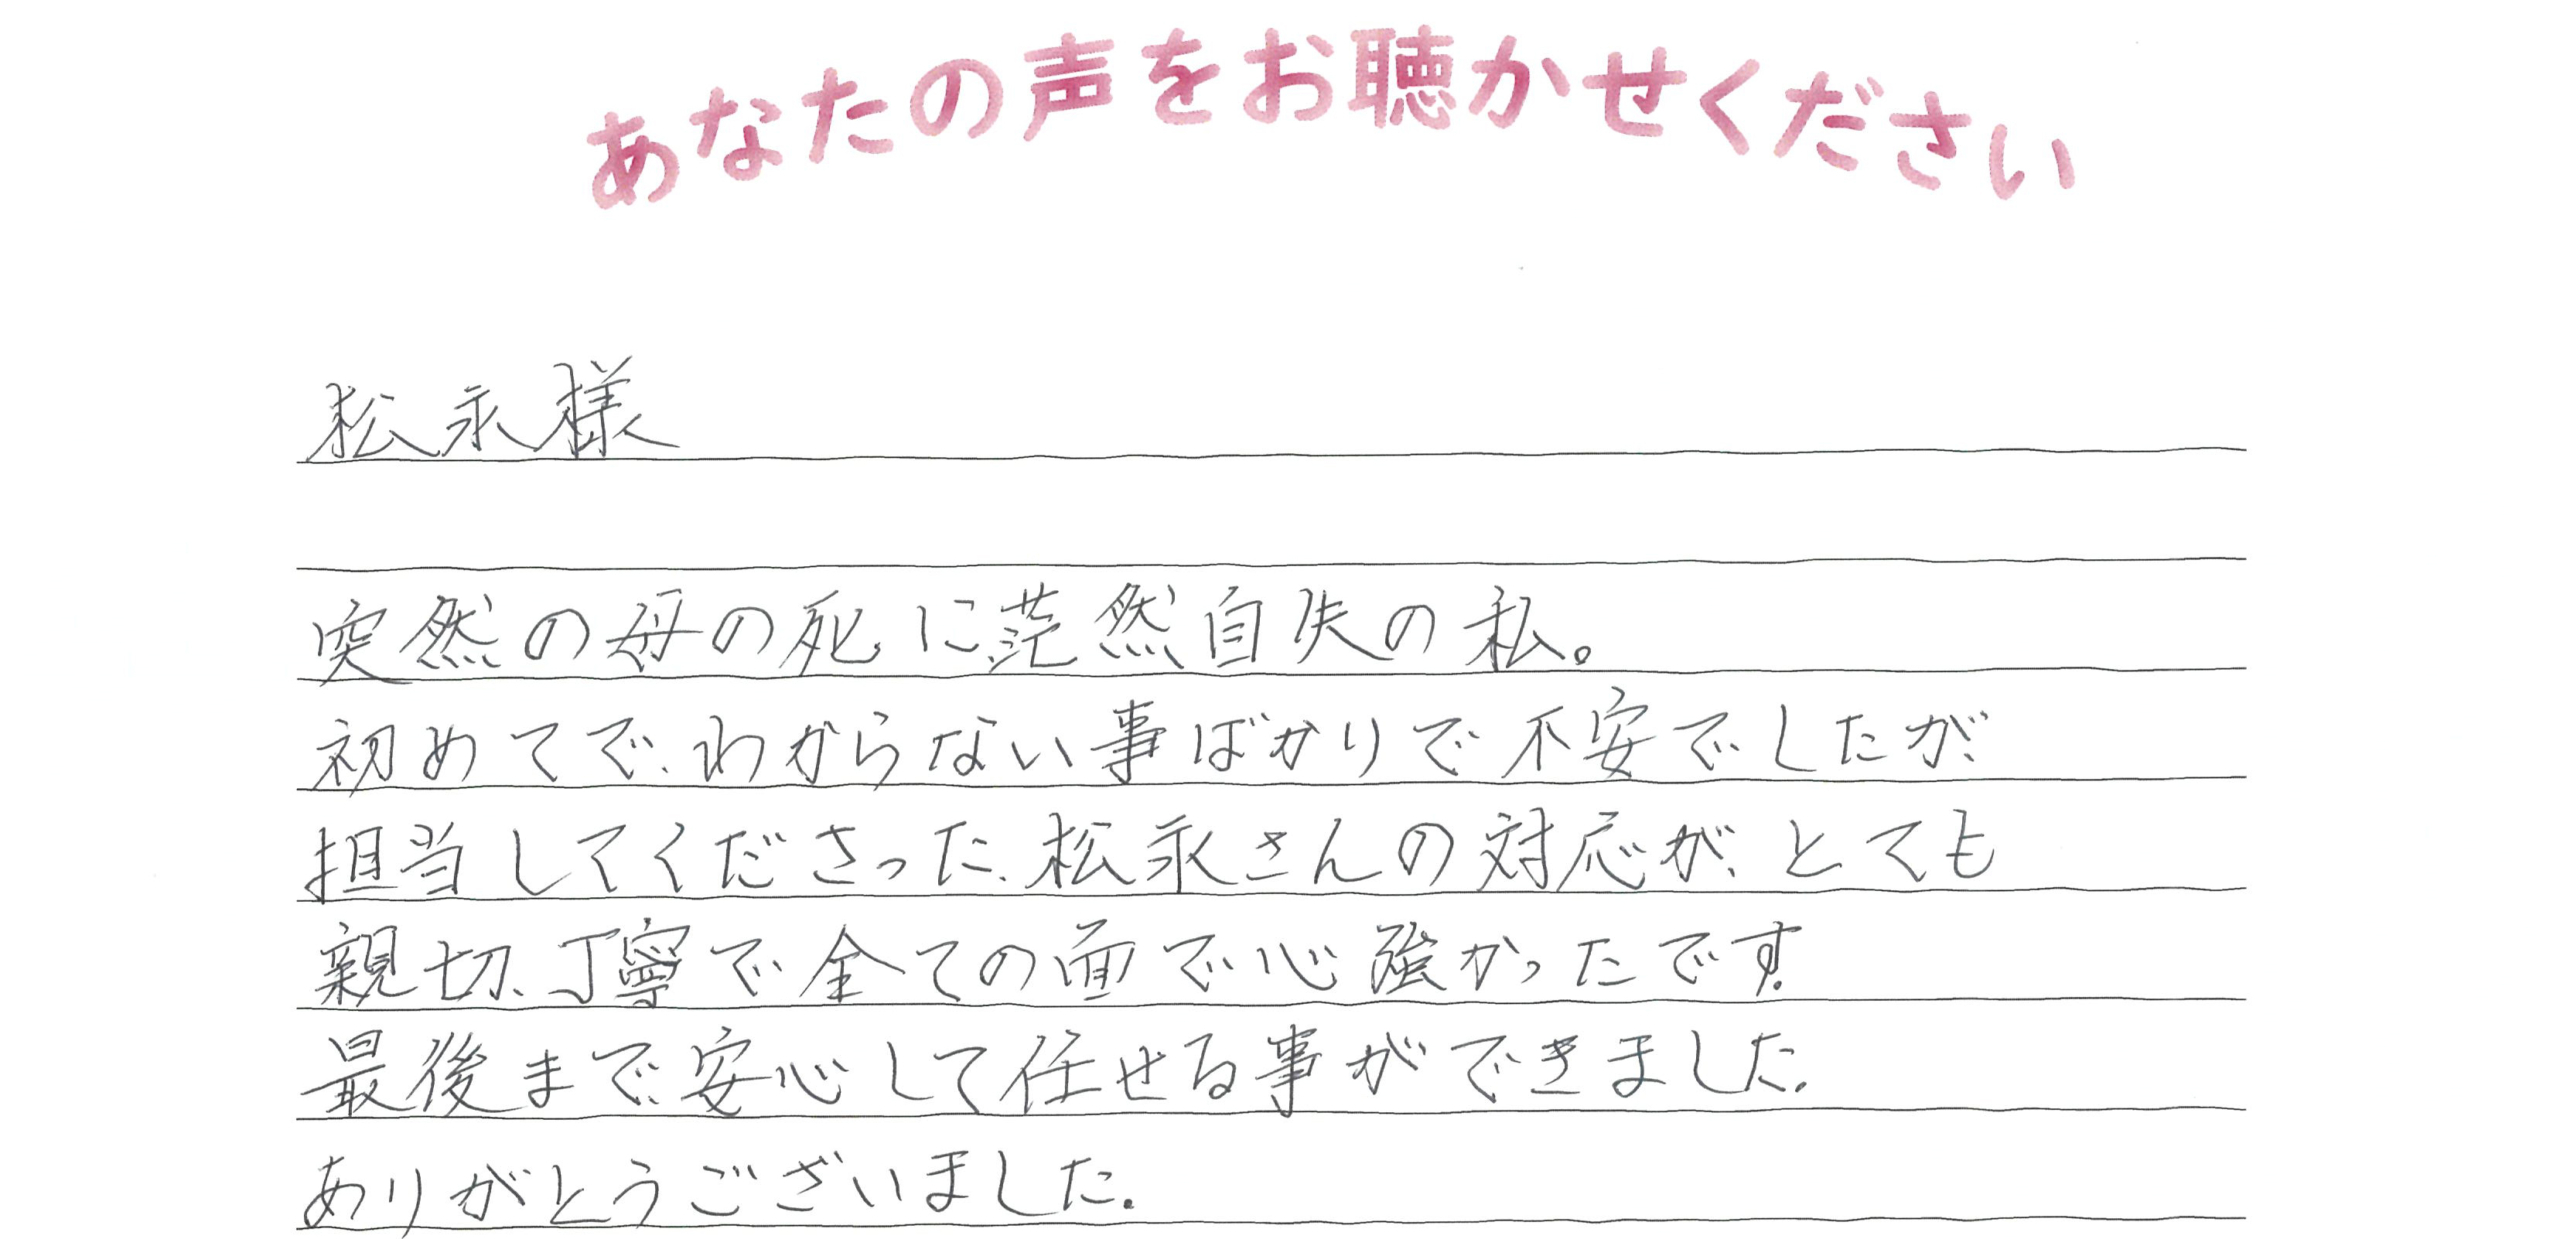 あなたの声をお聴かせください
松永様
突然の母の死に茫然自失の私。
初めてで、わからない事ばかりで不安でしたが、
担当してくださった、松永さんの対応が、とても
親切、丁寧で全ての面で心強かったです。
最後まで、安心して任せる事ができました。
ありがとうございました。